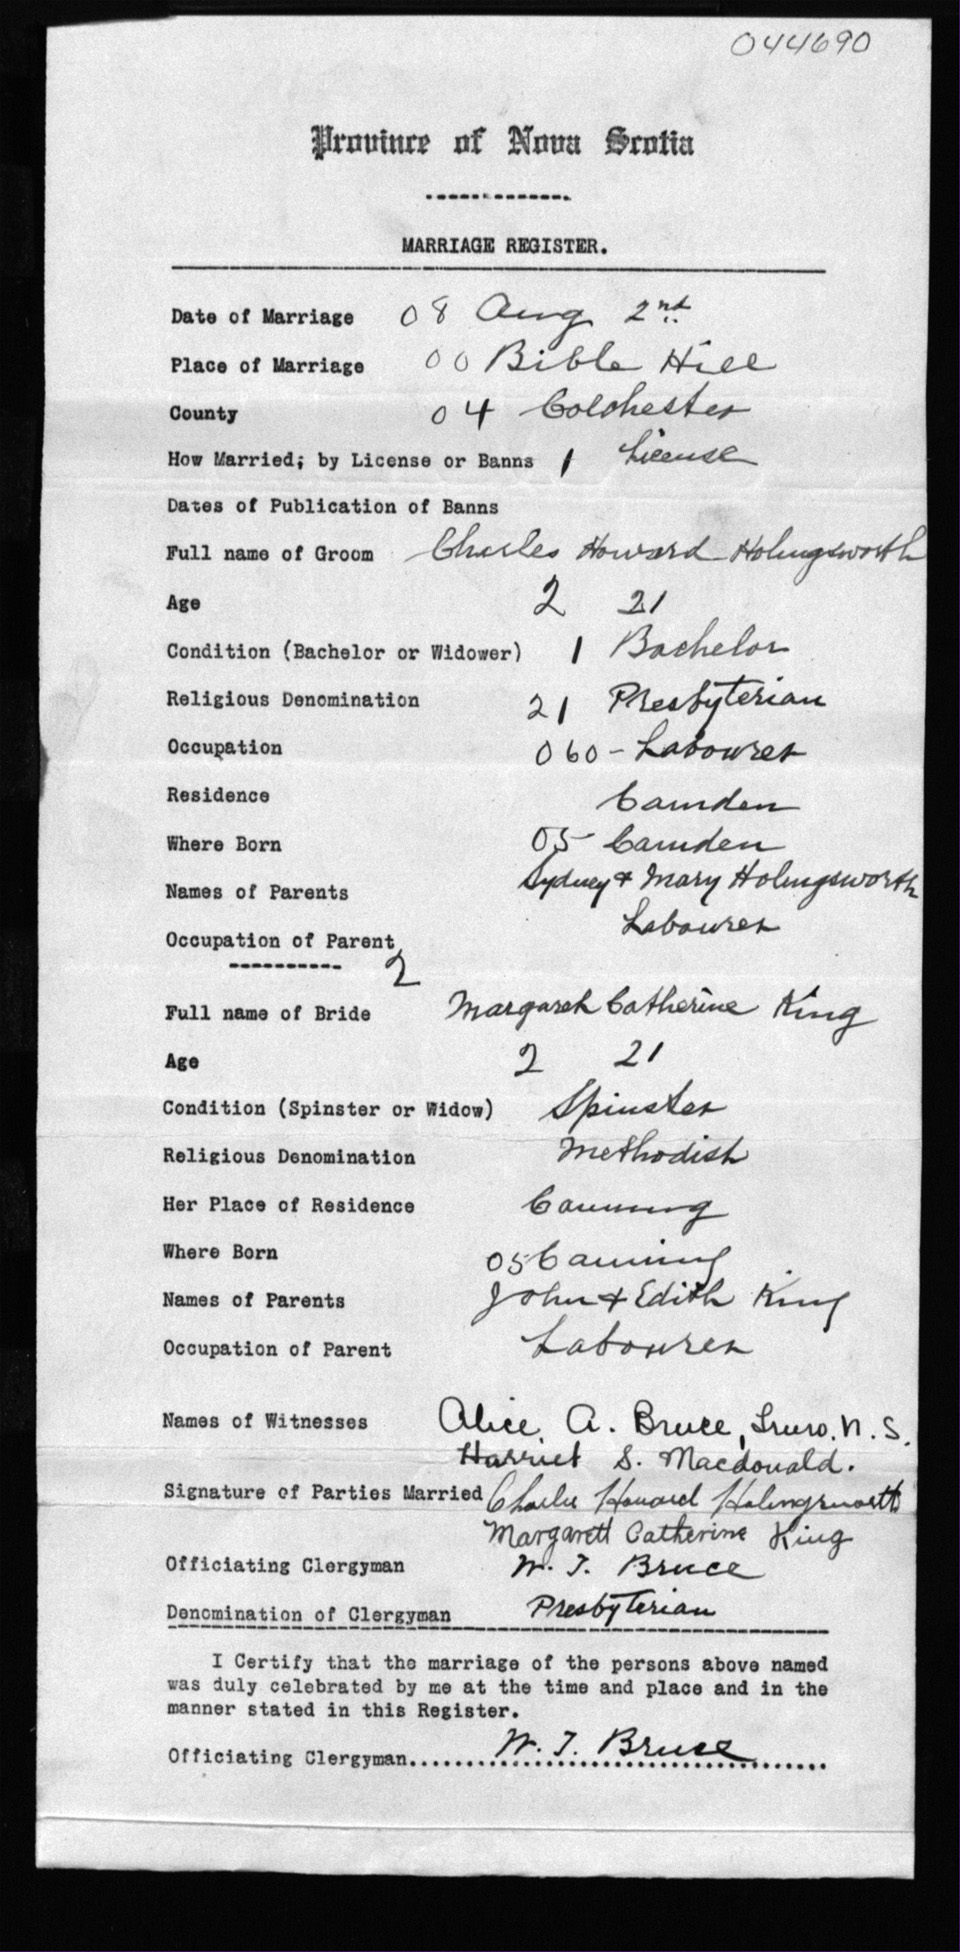 044690
Province of Nova Scotia
MARRIAGE REGISTER.
Date of Marriage 08 Aug 2nd
Place of Marriage 00 Bible Hill
County 04 Colchester
How Married; by License or Banns 1 License
Dates of Publication of Banns
Full name of Groom Charles Howard Holingsworth
Age 2 21
Condition (Bachelor or Widower) 1 Bachelor
Religious Denomination 21 Presbyterian
Occupation 060 - Labourer
Residence Camden
Where Born 05 Camden
Names of Parents Sydney & Mary Holingsworth
Occupation of Parent Labourer
2
Full name of Bride Margaret Catherine King
Age 2 21
Condition (Spinster or Widow) Spinster
Religious Denomination Methodist
Her Place of Residence Canning
Where Born 05 Canning
Names of Parents John & Edith King
Occupation of Parent Labourer
Names of Witnesses Alice A. Bruce, Truro. N. S.
Harriet S. Macdonald.
Signature of Parties Married Charlie Howard Holingsworth
Margarett Catherine King
Officiating Clergyman W. T. Bruce
Denomination of Clergyman Presbyterian
I Certify that the marriage of the persons above named
was duly celebrated by me at the time and place and in the
manner stated in this Register.
Officiating Clergyman........ W. T. Bruce